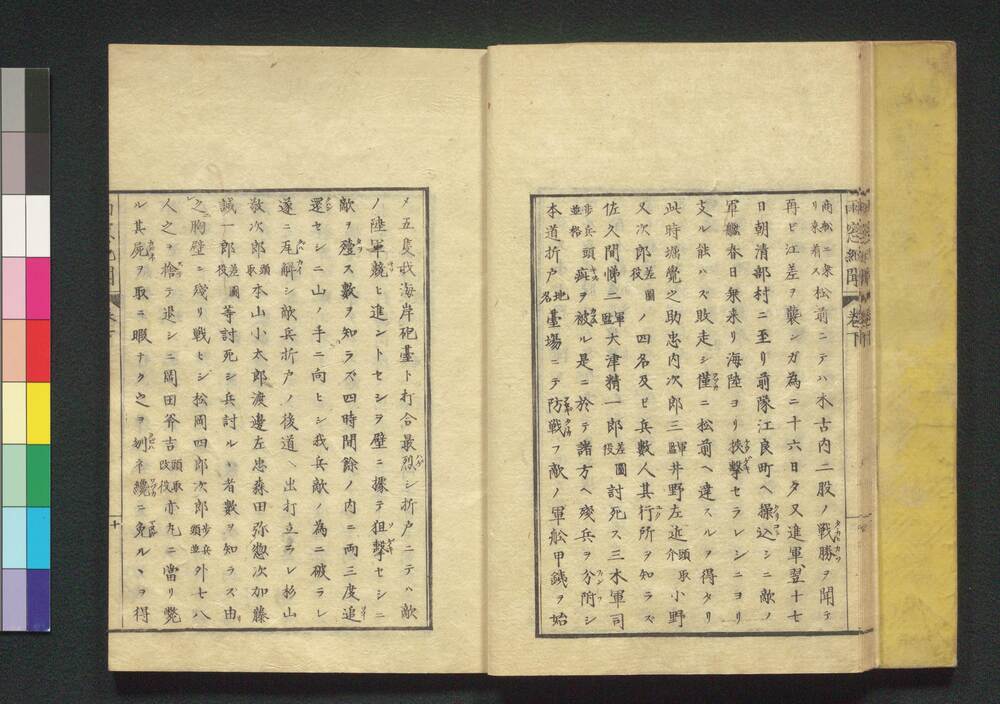 商船ニ乗リ来着ス松前ニテハ木古内二股ノ戦勝ヲ聞テ
再ビ江差ヲ襲ンガ為ニ十六日夕又進軍翌十七
日朝清部村ニ至リ前隊江良町ヘ操込シニ敵ノ
軍艦春日乗来リ海陸ヨリ挾撃セラレシニヨリ
支ル能ハズ敗走シ僅ニ松前ヘ達スルヲ得タリ
此時堀覺之助忠内次郎三軍監井野左近介頭取小野
又次郎差圖役ノ四名及ビ兵數人其行所ヲ知ラズ
佐久間悌二軍監大津精一郎差圖役討死ス三木軍司
歩兵頭並格疵ヲ被ル是ニ於テ諸方ヘ殘兵ヲ分附シ
本道折戸地名臺場ニテ防戦フ敵ノ軍舩甲鐡ヲ始
メ五隻我海岸砲臺ト打合最烈シ折戸ニテハ敵
ノ陸軍競ヒ進ントセシヲ壁ニ據テ狙撃セシニ
敵ヲ殪ス數ヲ知ラズ四時間餘ノ内ニ両三度追
還セシニ山ノ手ニ向ヒシ我兵敵ノ為ニ破ラレ
遂ニ瓦解シ敵兵折戸ノ後道ヘ出打立ラレ杉山
敦次郎頭取本山小太郎渡邊左忠森田弥惣次加藤
誠一郎差圖役等討死シ兵討ルヽ者數ヲ知ラズ由
之胸壁ニ殘リ戦ヒシ松岡四郎次郎歩兵頭並外七八
人之ヲ捨テ退シニ岡田斧吉頭取改役亦丸ニ當リ斃
ル其屍ヲ取ニ暇ナク之ヲ刎ネ纔ニ免ルヽヲ得
十